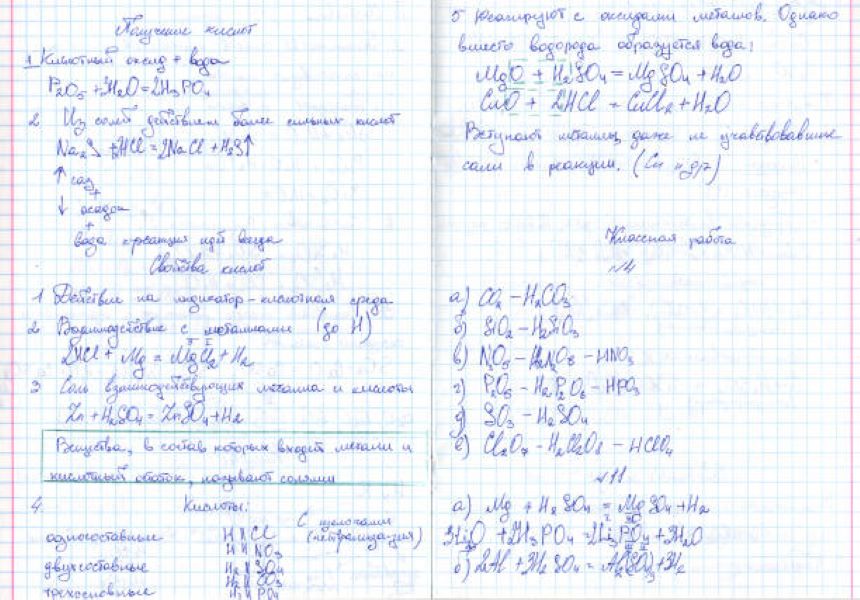 Получение кислот
1 Кислотный оксид + вода
P₂O₅ + 3H₂O = 2H₃PO₄
2 Из солей действием более сильных кислот
Na₂S + 2HCl = 2NaCl + H₂S↑
↑ газ
+
↓ осадок
+
вода реакция идёт всегда
Свойства кислот
1 Действие на индикатор - кислотная среда
2 Взаимодействие с металлами (до H)
2HCl + Mg = MgCl₂ + H₂
3 Соль взаимодействующих металла и кислоты
Zn + H₂SO₄ = ZnSO₄ + H₂
Вещества, в состав которых входят металл и
кислотный остаток, называют солями
4. Кислоты:
С щелочами
одноосновные H Cl (нетрализация)
H NO₃
двухосновные H₂ SO₄
H₂ CO₃
трехосновные H₃ PO₄
5 Реагируют с оксидами металлов. Однако
вместо водорода образуется вода:
MgO + H₂SO₄ = MgSO₄ + H₂O
CuO + 2HCl = CuCl₂ + H₂O
Вступают металлы, даже не учавствовавшие
сами в реакции. (Cu и др)
Классная работа
№4
а) CO₂ – H₂CO₃
б) SiO₂ – H₂SiO₃
в) N₂O₅ – H₂N₂O₆ – HNO₃
г) P₂O₅ – H₂P₂O₆ – HPO₃
д) SO₃ – H₂SO₄
е) Cl₂O₇ – H₂Cl₂O₈ – HClO₄
№11
а) Mg + H₂SO₄ = MgSO₄ + H₂
3Li₂O + 2H₃PO₄ = 2Li₃PO₄ + 3H₂O
б) 2Al + 3H₂SO₄ = Al₂(SO₄)₃ + 3H₂